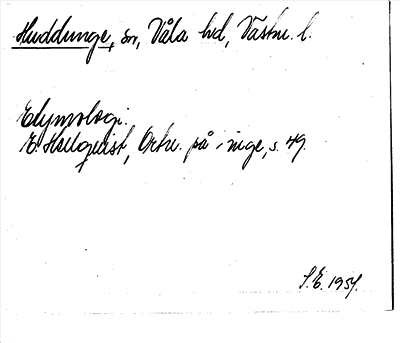 Huddunge, sn, Våla hd, Västm. l.
Etymologi.
E. Hellquist, Ortn. på -inge, s. 49.
S.E. 1954.